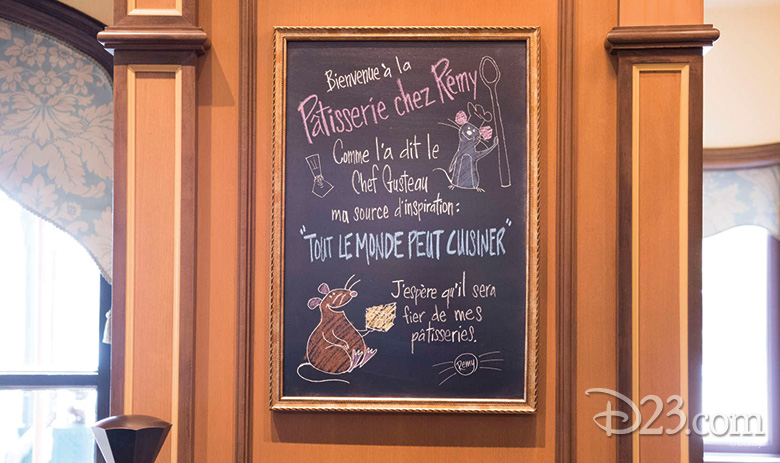 Bienvenue à la
Pâtisserie chez Rémy
Comme l'a dit le
Chef Gusteau
ma source d'inspiration:
"TOUT LE MONDE PEUT CUISINER"
J'espère qu'il sera
fier de mes
pâtisseries.
Remy
D23.com